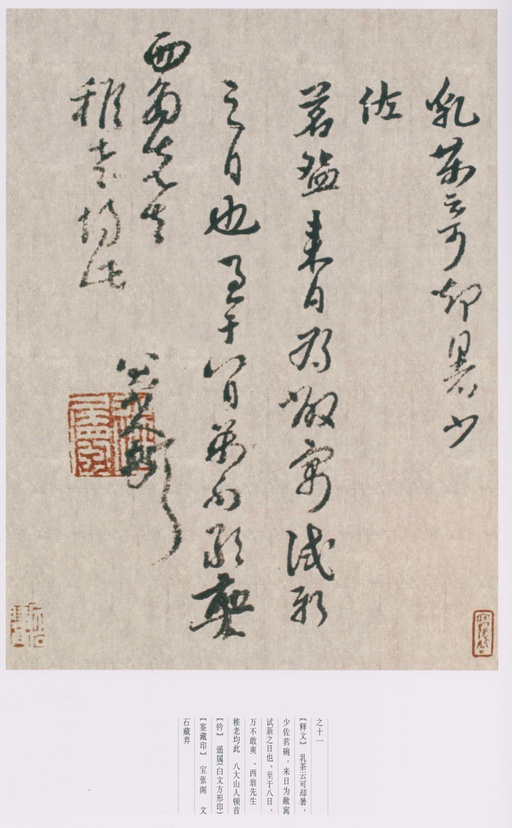 乳茶云可却暑少
佐
茗碗来日为敝寓试新
之日也至于八日万不敢爽
西翁先生
稚老均此
八大山人顿首
之十一
【释文】 乳茶云可却暑，
少佐茗碗，来日为敝寓
试新之日也，至于八日，
万不敢爽，西翁先生
稚老均此 八大山人顿首
【钤】 遥属(白文方形印)
【鉴藏印】 宝张阁 文
石藏弆